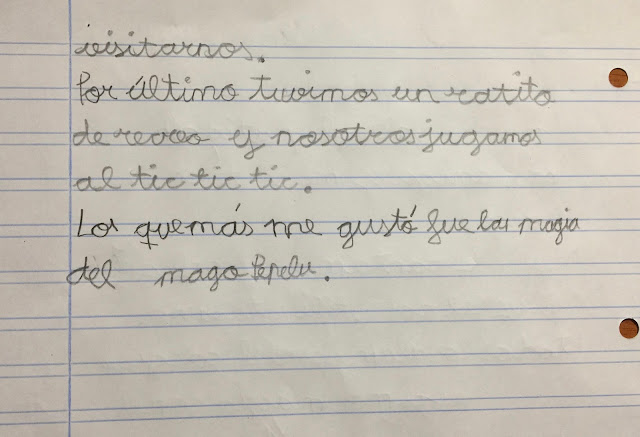 visitarnos.
Por último tuvimos un ratito
de recreo y nosotros jugamos
al tic tic tic.
Lo quemás me gustó fue la magia
del mago Pepelu.